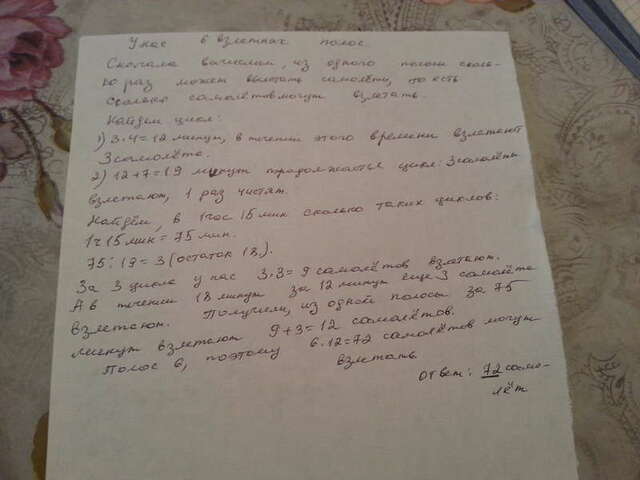 У нас 6 взлетных полос.
Сначала вычислим, из одного полосы сколь-
ко раз может вылетать самолёты, то есть
сколько самолётов могут взлетать.
Найдем цикл:
1) 3·4=12 минут, в течении этого времени взлетают
3 самолёта.
2) 12+7=19 минут продолжается цикл: 3 самолёты
взлетают, 1 раз чистят.
Найдём, в 1 час 15 мин сколько таких циклов:
1ч 15 мин = 75 мин.
75:19=3 (остаток 18).
За 3 цикла у нас 3·3=9 самолётов взлетают.
А в течении 18 минут за 12 минут еще 3 самолёта
взлетают. Получили, из одной полосы за 75
минут взлетают 9+3=12 самолётов.
Полос 6, поэтому 6·12=72 самолётов могут
взлетать.
Ответ: 72 само-
лёт